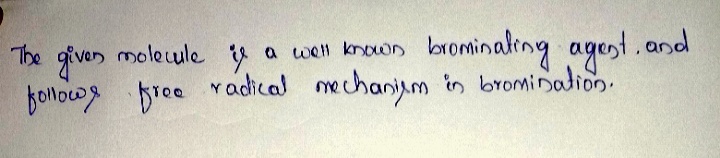 The given molecule is a well known brominating agent. and
follows free radical mechanism in bromination.